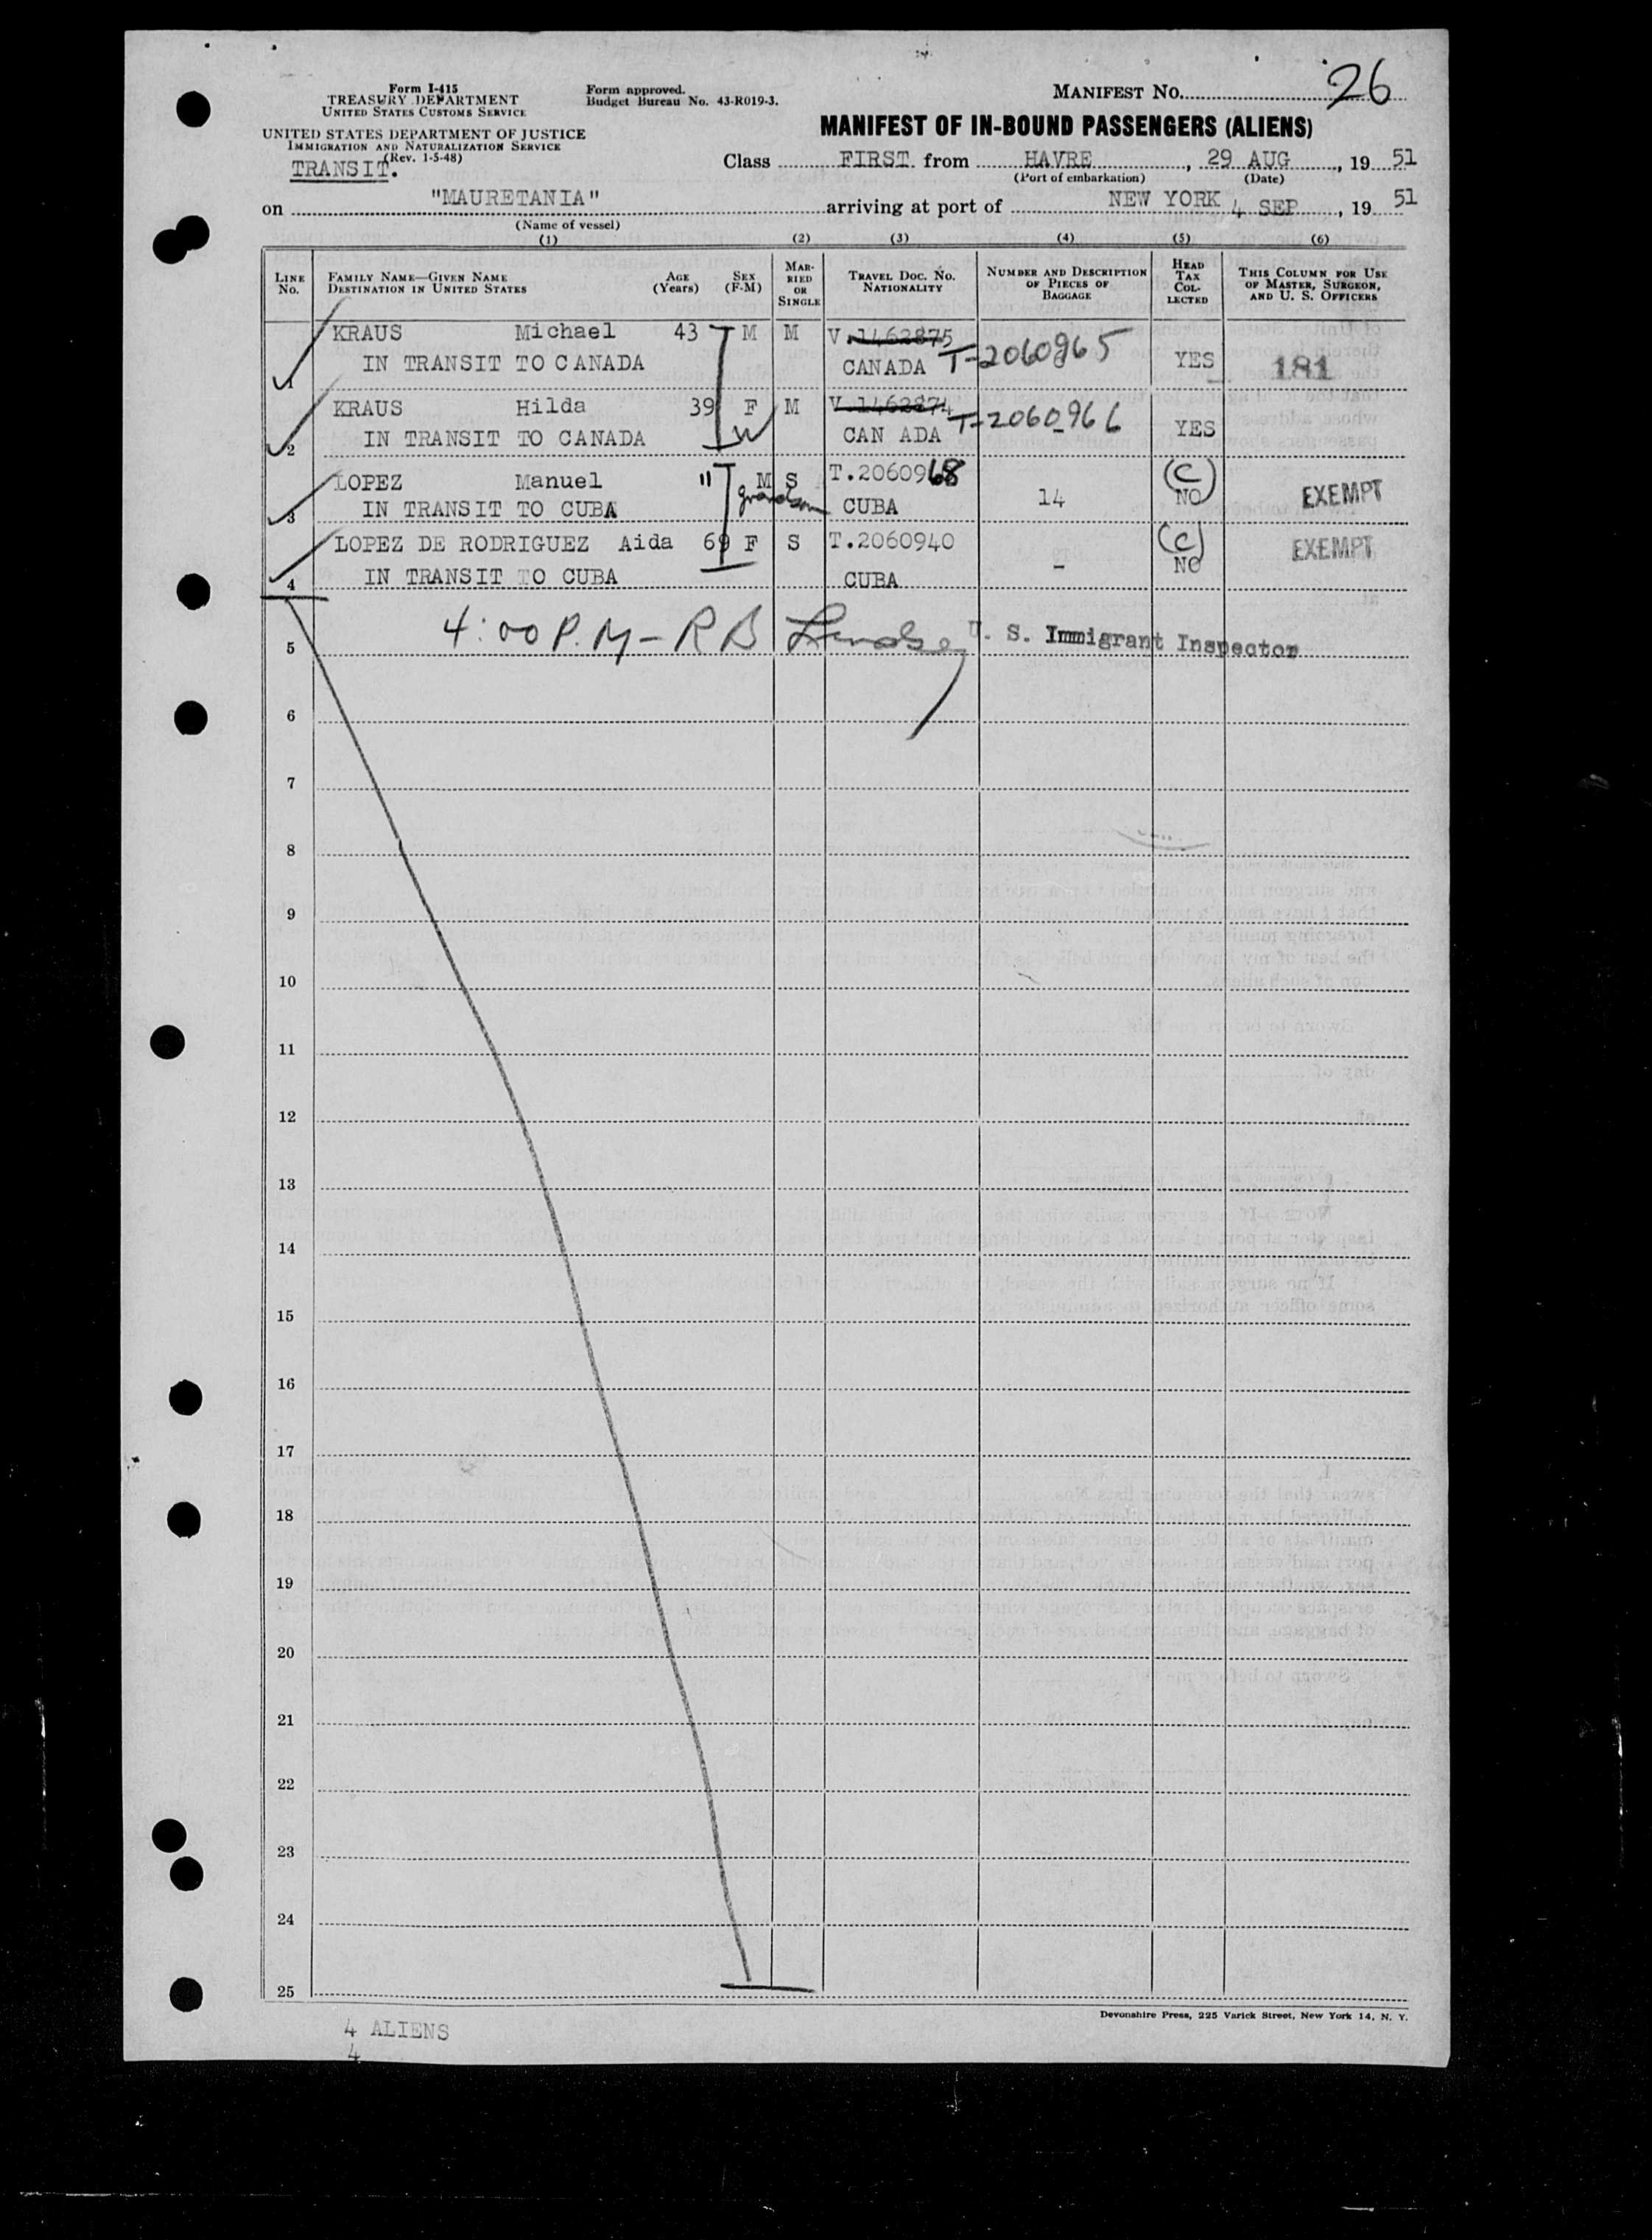 26
Form I-415
TREASURY DEPARTMENT
UNITED STATES CUSTOMS SERVICE
Form approved.
Budget Bureau No. 43-R019-3.
MANIFEST NO.
UNITED STATES DEPARTMENT OF JUSTICE
IMMIGRATION AND NATURALIZATION SERVICE
(Rev. 1-5-48)
MANIFEST OF IN-BOUND PASSENGERS (ALIENS)
TRANSIT.
Class FIRST from HAVRE, 29 AUG, 19 51
(Port of embarkation) (Date)
on "MAURETANIA" arriving at port of NEW YORK 4 SEP, 19 51
(Name of vessel)
(1) (2) (3) (4) (5) (6)
LINE No. FAMILY NAME—GIVEN NAME DESTINATION IN UNITED STATES AGE (Years) SEX (F-M) MARRIED OR SINGLE TRAVEL DOC. NO. NATIONALITY NUMBER AND DESCRIPTION OF PIECES OF BAGGAGE HEAD TAX COLLECTED THIS COLUMN FOR USE OF MASTER, SURGEON, AND U. S. OFFICERS
KRAUS Michael 43 M M V.1462875 T-2060965
1 IN TRANSIT TO CANADA CANADA YES 181
KRAUS Hilda 39 F M V.1462874 T-2060966
2 IN TRANSIT TO CANADA W CAN ADA - YES
LOPEZ Manuel 11 M S T.2060968 (C)
3 IN TRANSIT TO CUBA grandson CUBA 14 NO EXEMPT
LOPEZ DE RODRIGUEZ Aida 69 F S T.2060940 (C) EXEMPT
4 IN TRANSIT TO CUBA CUBA - NO
5 4:00 P.M - R B U. S. Immigrant Inspector
6
7
8
9
10
11
12
13
14
15
16
17
18
19
20
21
22
23
24
25
Devonshire Press, 225 Varick Street, New York 14, N. Y.
4 ALIENS
4